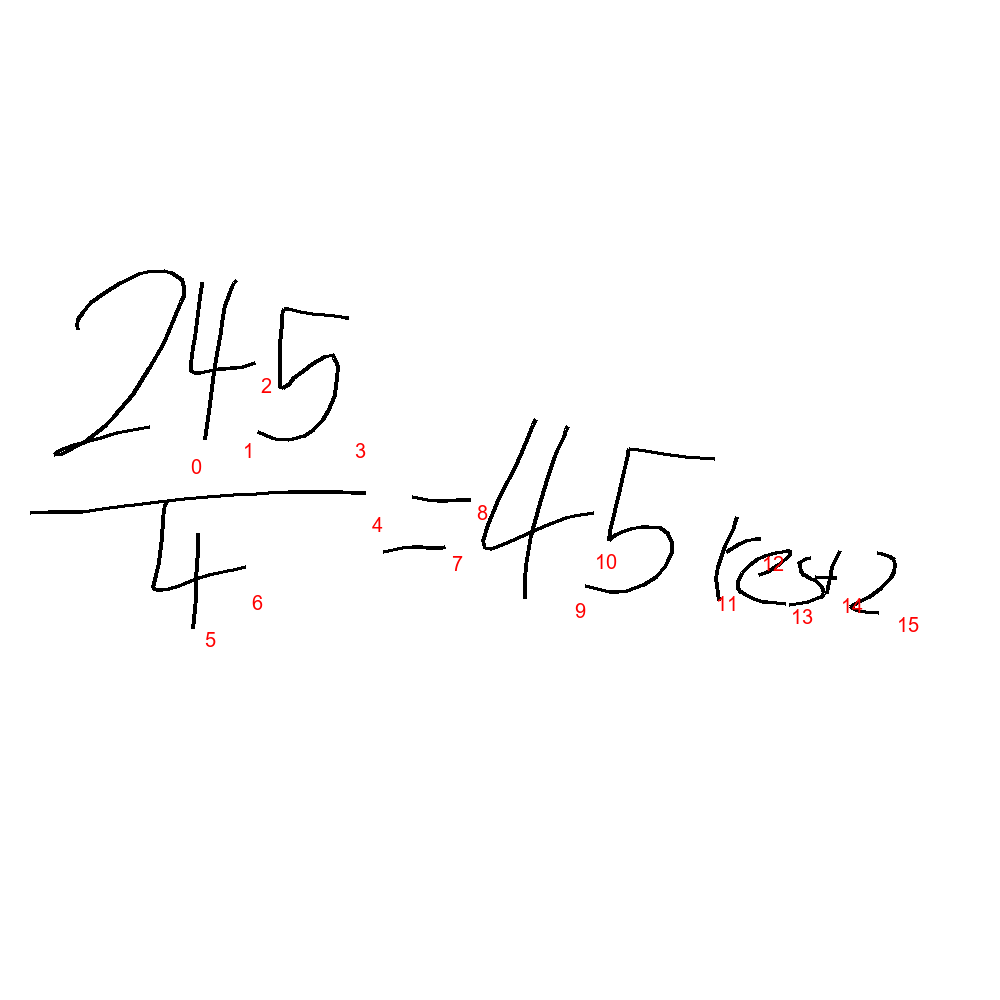 245
4
= 45 rest 2
0 1 2 3 4 5 6 7 8 9 10 11 12 13 14 15